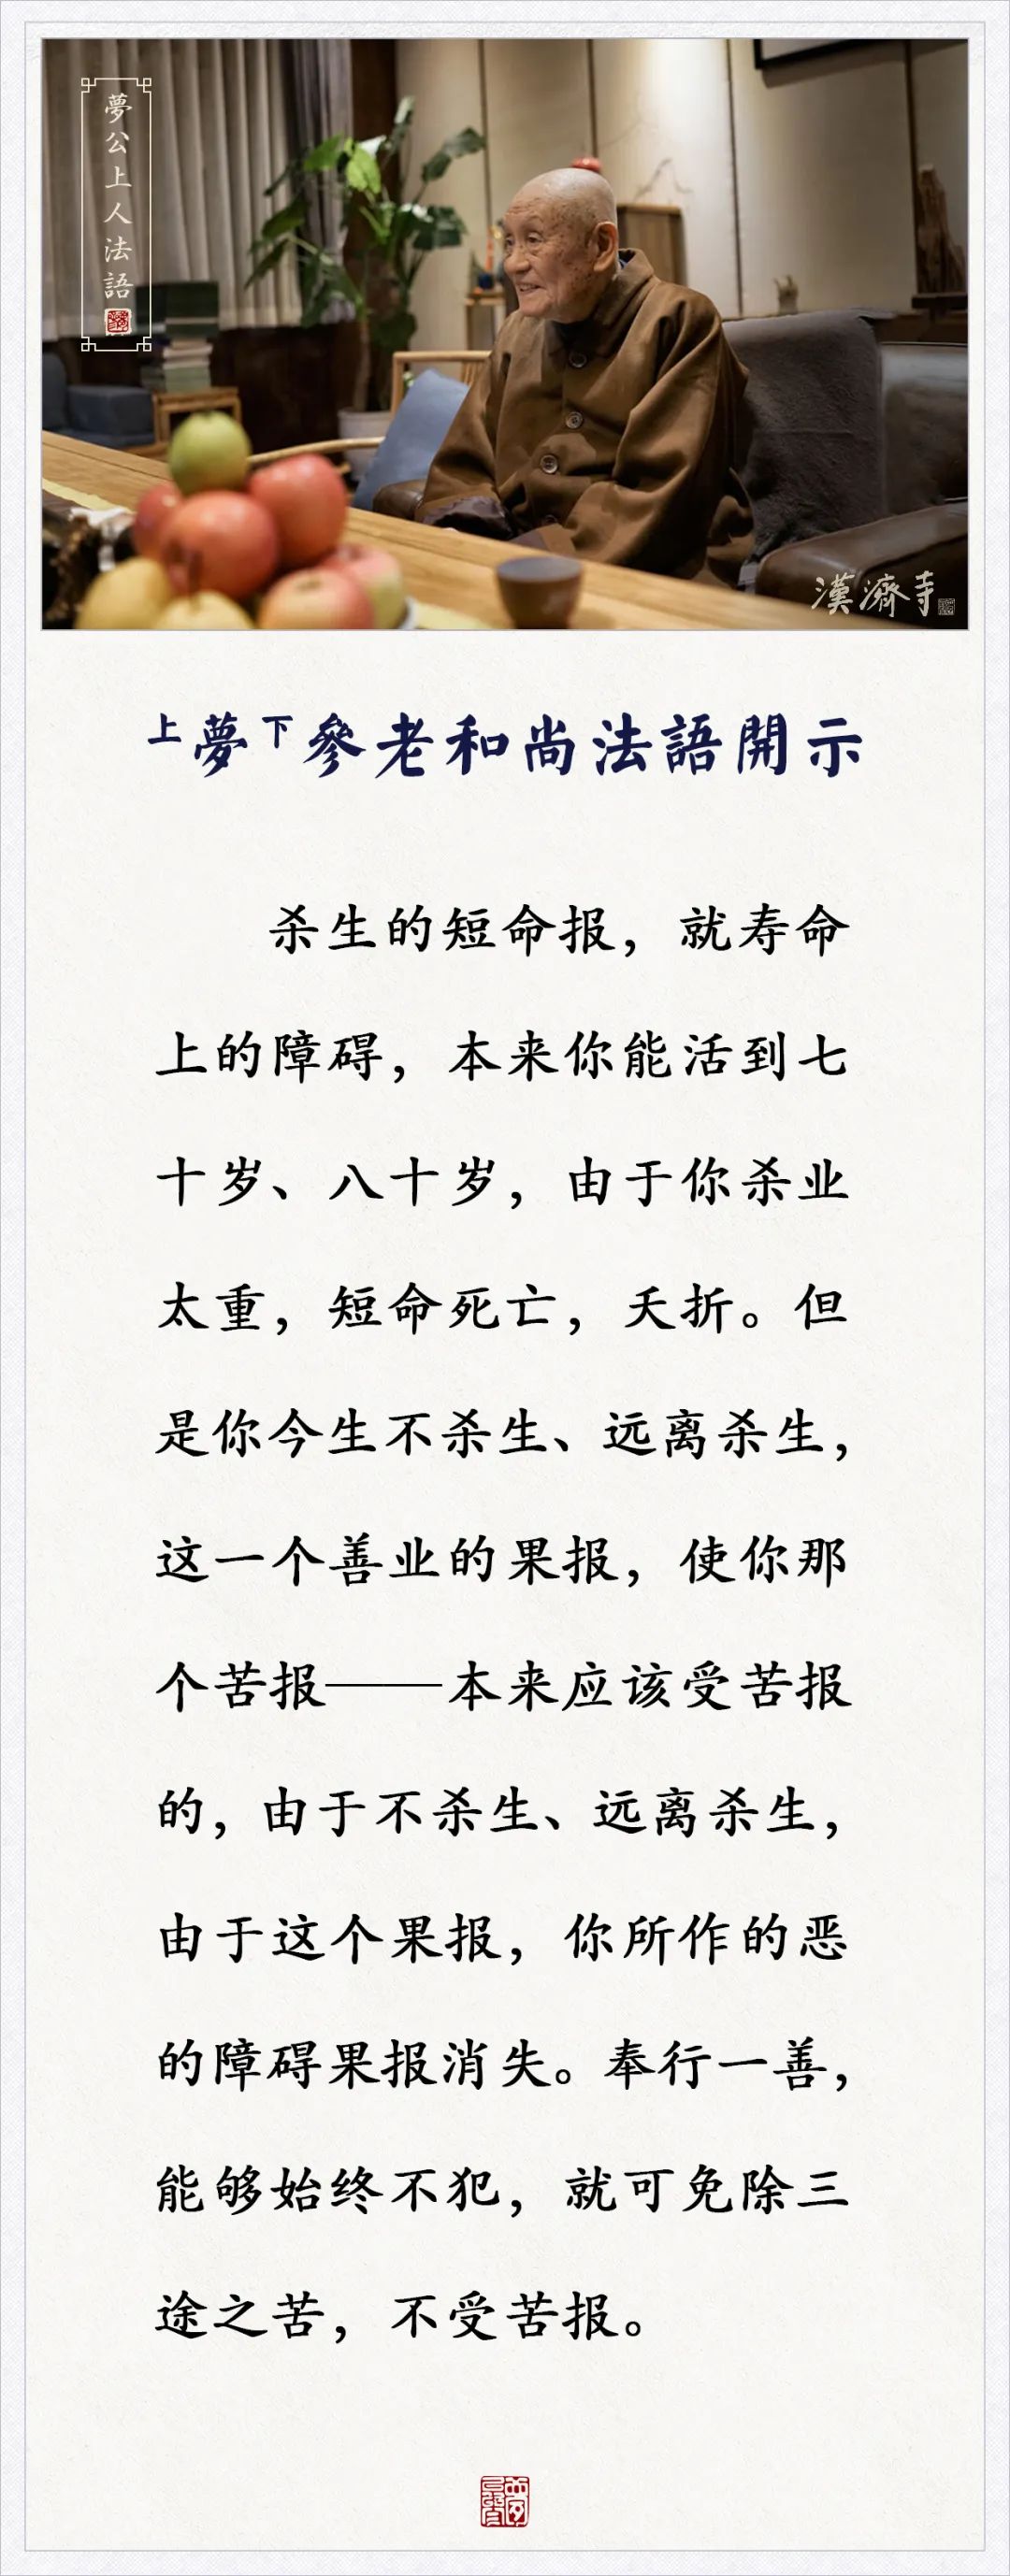 夢公上人法語
漢濟寺
上夢下參老和尚法語開示
杀生的短命报，就寿命
上的障碍，本来你能活到七
十岁、八十岁，由于你杀业
太重，短命死亡，夭折。但
是你今生不杀生、远离杀生，
这一个善业的果报，使你那
个苦报——本来应该受苦报
的，由于不杀生、远离杀生，
由于这个果报，你所作的恶
的障碍果报消失。奉行一善，
能够始终不犯，就可免除三
途之苦，不受苦报。